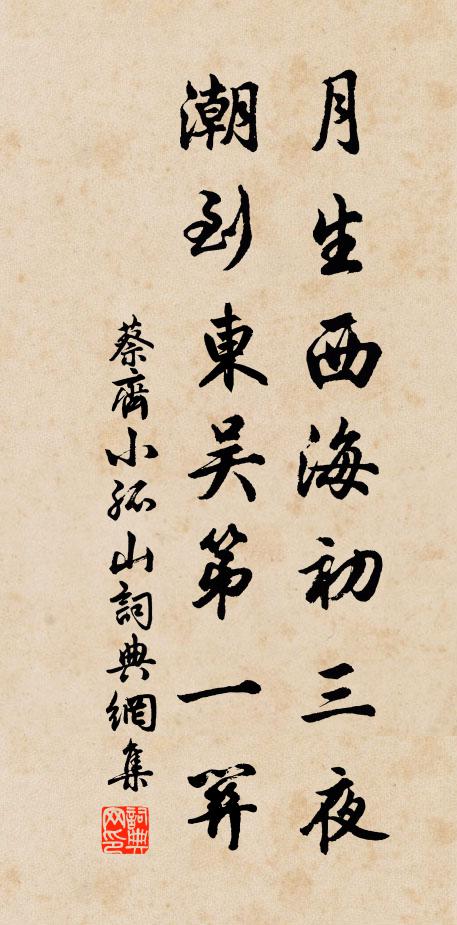 月生西海初三夜
潮到東吴第一關
蔡齊小孤山詞典網集
詞典网印